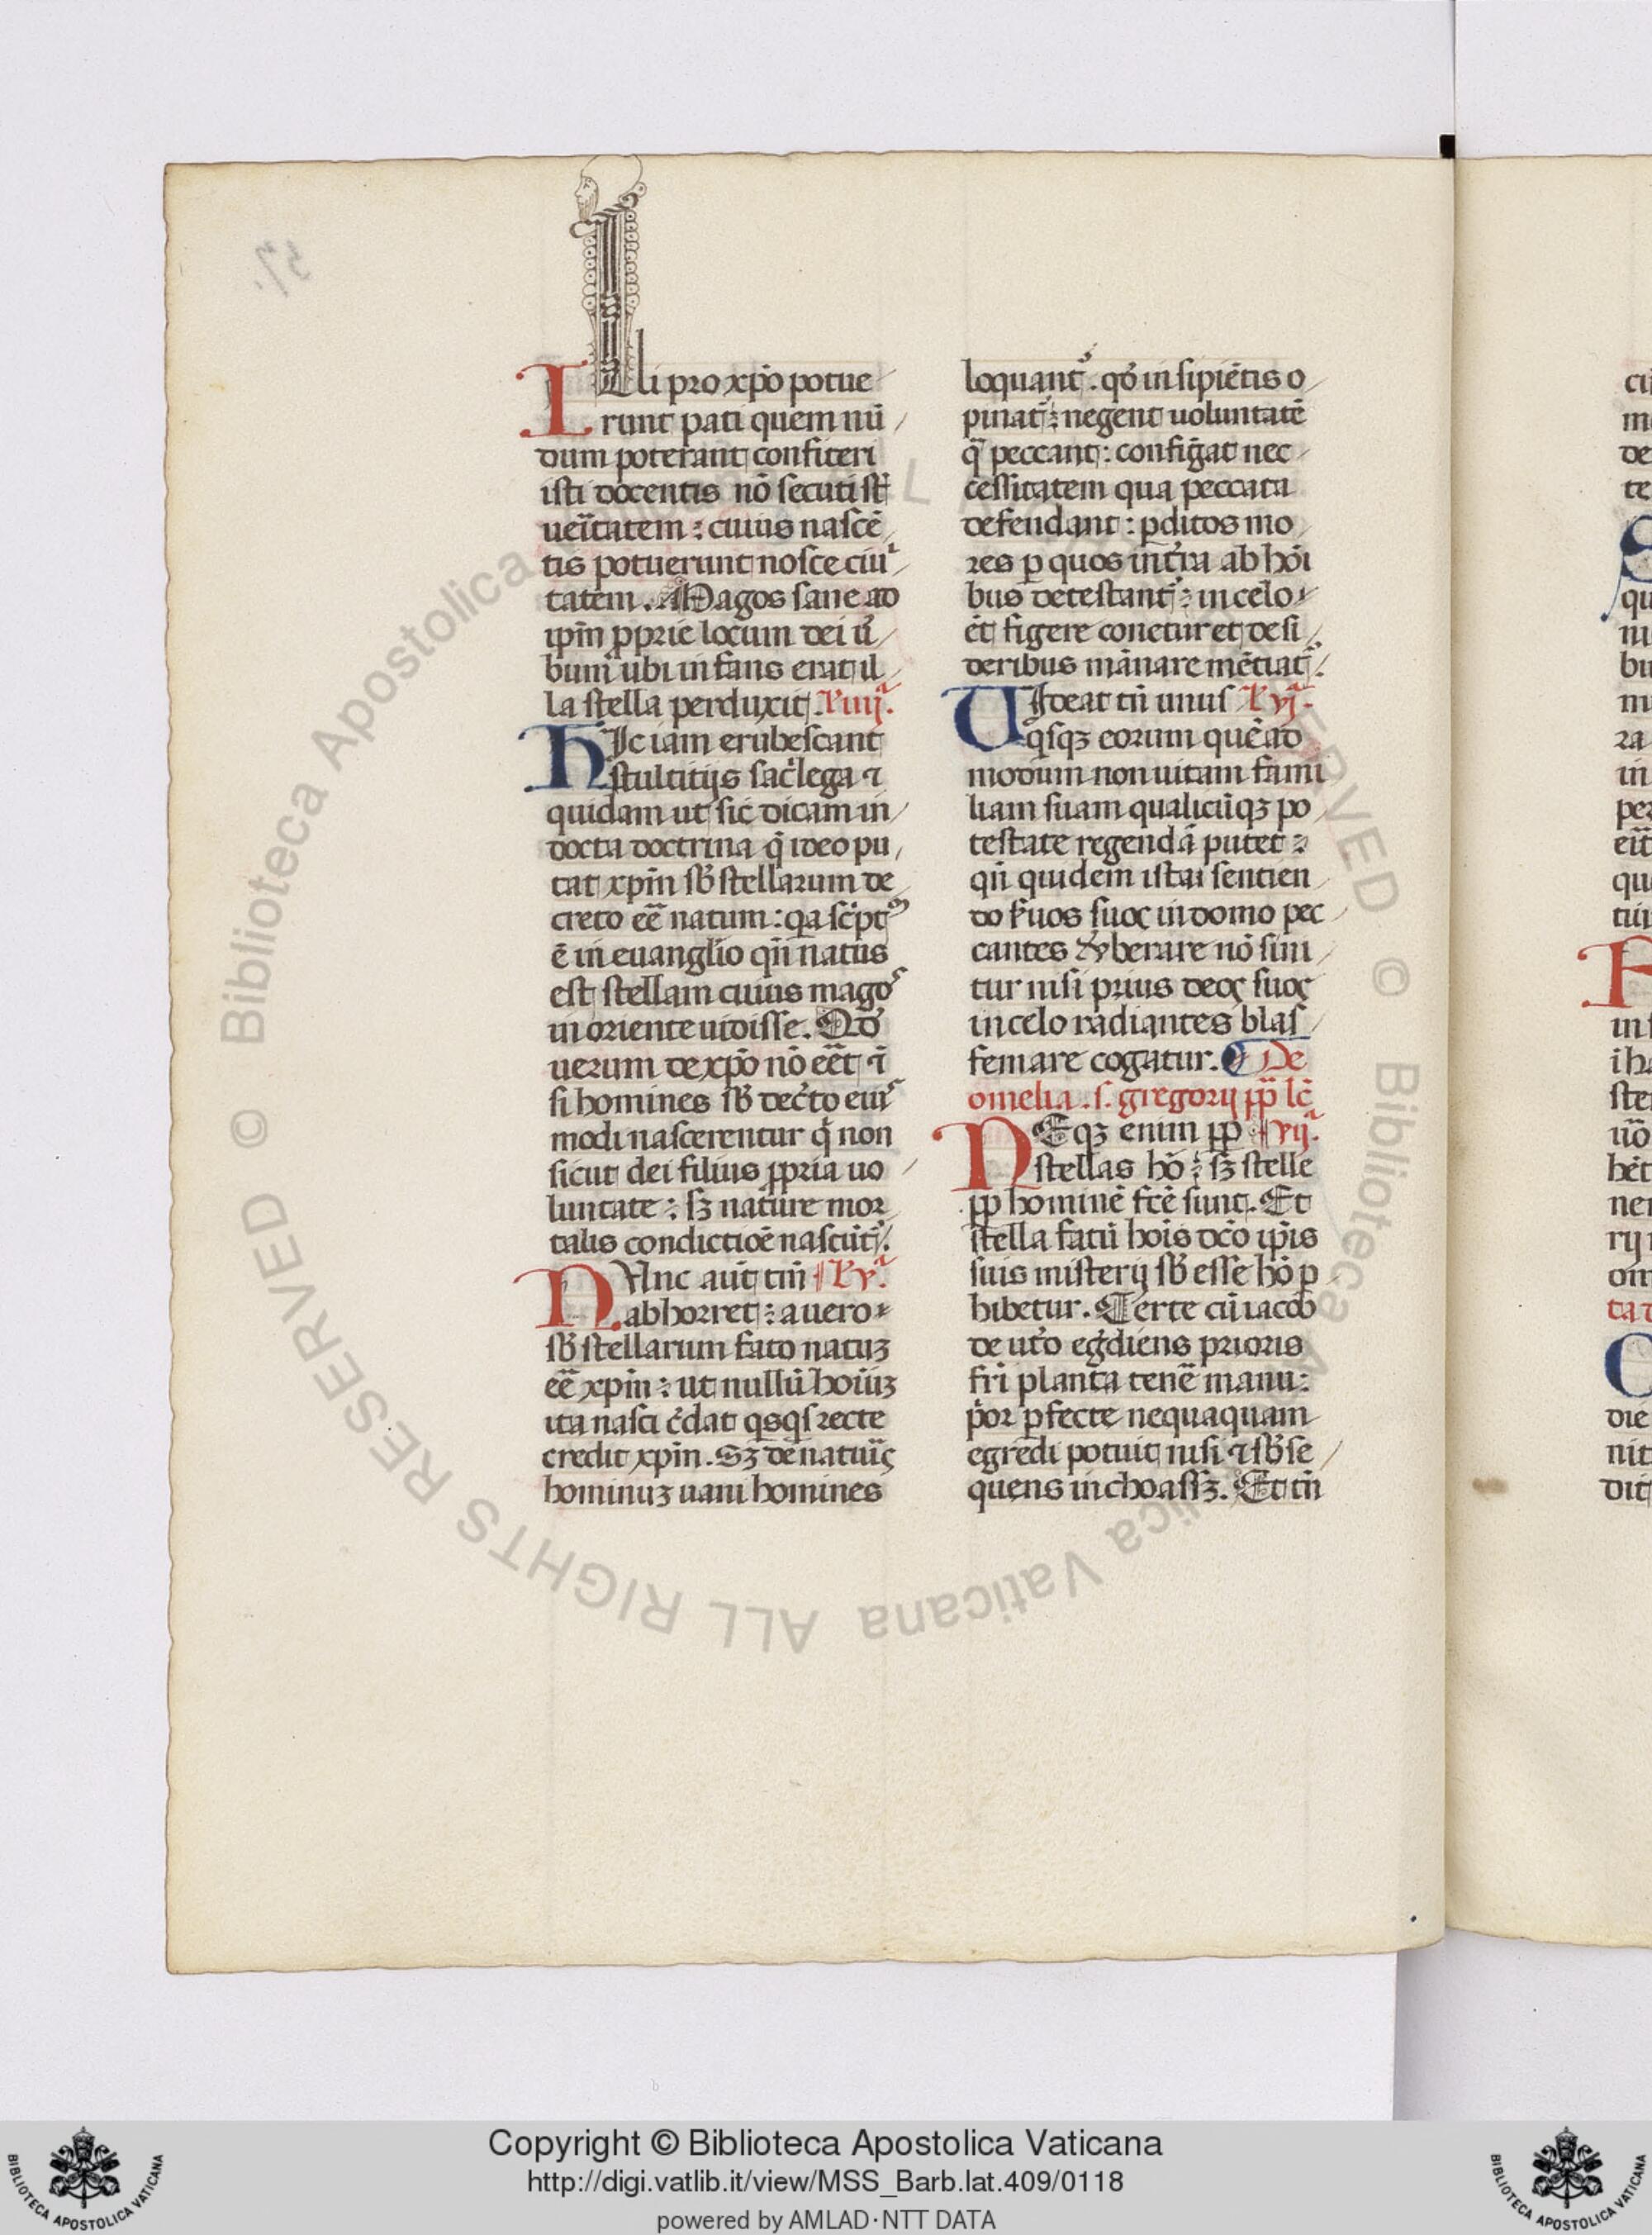 ILli pro xp̄o potue
runt pati quem nū
dum poterant confiteri
isti docentis nō secuti st̄
ueritatem : cuius nascē
tis potuerunt nosce ciui
tatem. Magos sane ad
ip̄m ꝓprie locum dei ū
bum ubi infans erat il
la stella perduxit. l' iiij.ª
HIc iam erubescant
stultitijs sac'lega ⁊
quidam ut sic dicam in
docta doctrina q̄ ideo pu
tat xp̄m sb̄ stellarum de
creto eē natum : qa sc'pt
ē in euangl̄io qn̄ natus
est stellam cuius magos
in oriente uidisse. Qd'
uerum de xp̄o nō eēt ⁊
si homines sb̄ dec'to eius
modi nascerentur q̄ non
sicut dei filius ꝓpria uo
luntate : sꝫ nature mor
talis condictiōe nascūt'.
NVnc aut̄ tm̄ l' v.ª
abhorret : a uero
sb̄ stellarum fato natuꝫ
eē xp̄m : ut nullū hoīuꝫ
ita nasci c'dat qsqs recte
credit xp̄m. Sꝫ de natiuis
hominuꝫ uani homines
loquant'. qd' insipiētis o
pinat' : negent uoluntatē
q̄ peccant : confīgat nec
cessitatem qua peccata
defendant : ꝑditos mo
res ꝑ quos int'ra ab hōi
bus detestant' : in celo
et figere conetur et de si
deribus mānare mētiat'.
UIdeat tn̄ unus l' vj.ª
qsqꝫ eorum quēad
modum non uitam fami
liam suam qualicūqꝫ po
testate regendā putet :
qn̄ quidem ista sentien
do s'uos suos in domo pec
cantes &berare nō sini
tur nisi prius deos suos
in celo radiantes blas
femare cogatur. ¶ De
omelia .s. gregorij pp̄ lc̄
NEqꝫ enim ꝓp vij.ª
stellas hō : sꝫ stelle
ꝓp hominē fc̄e sunt. Et
stella fatū hoīs dc̄o ip̄is
suis misterij sb̄ esse hō ꝑ
hibetur. Certe cū iacob
de ut'o eg'diens prioris
fr̄i planta tenē manu :
p'or ꝑfecte nequaquam
egredi potuit nisi ⁊ sb̄se
quens inchoassꝫ. Et tn̄
Copyright © Biblioteca Apostolica Vaticana
http://digi.vatlib.it/view/MSS_Barb.lat.409/0118
powered by AMLAD·NTT DATA
BIBLIOTECA APOSTOLICA VATICANA
BIBLIOTECA APOSTOLICA VATICANA